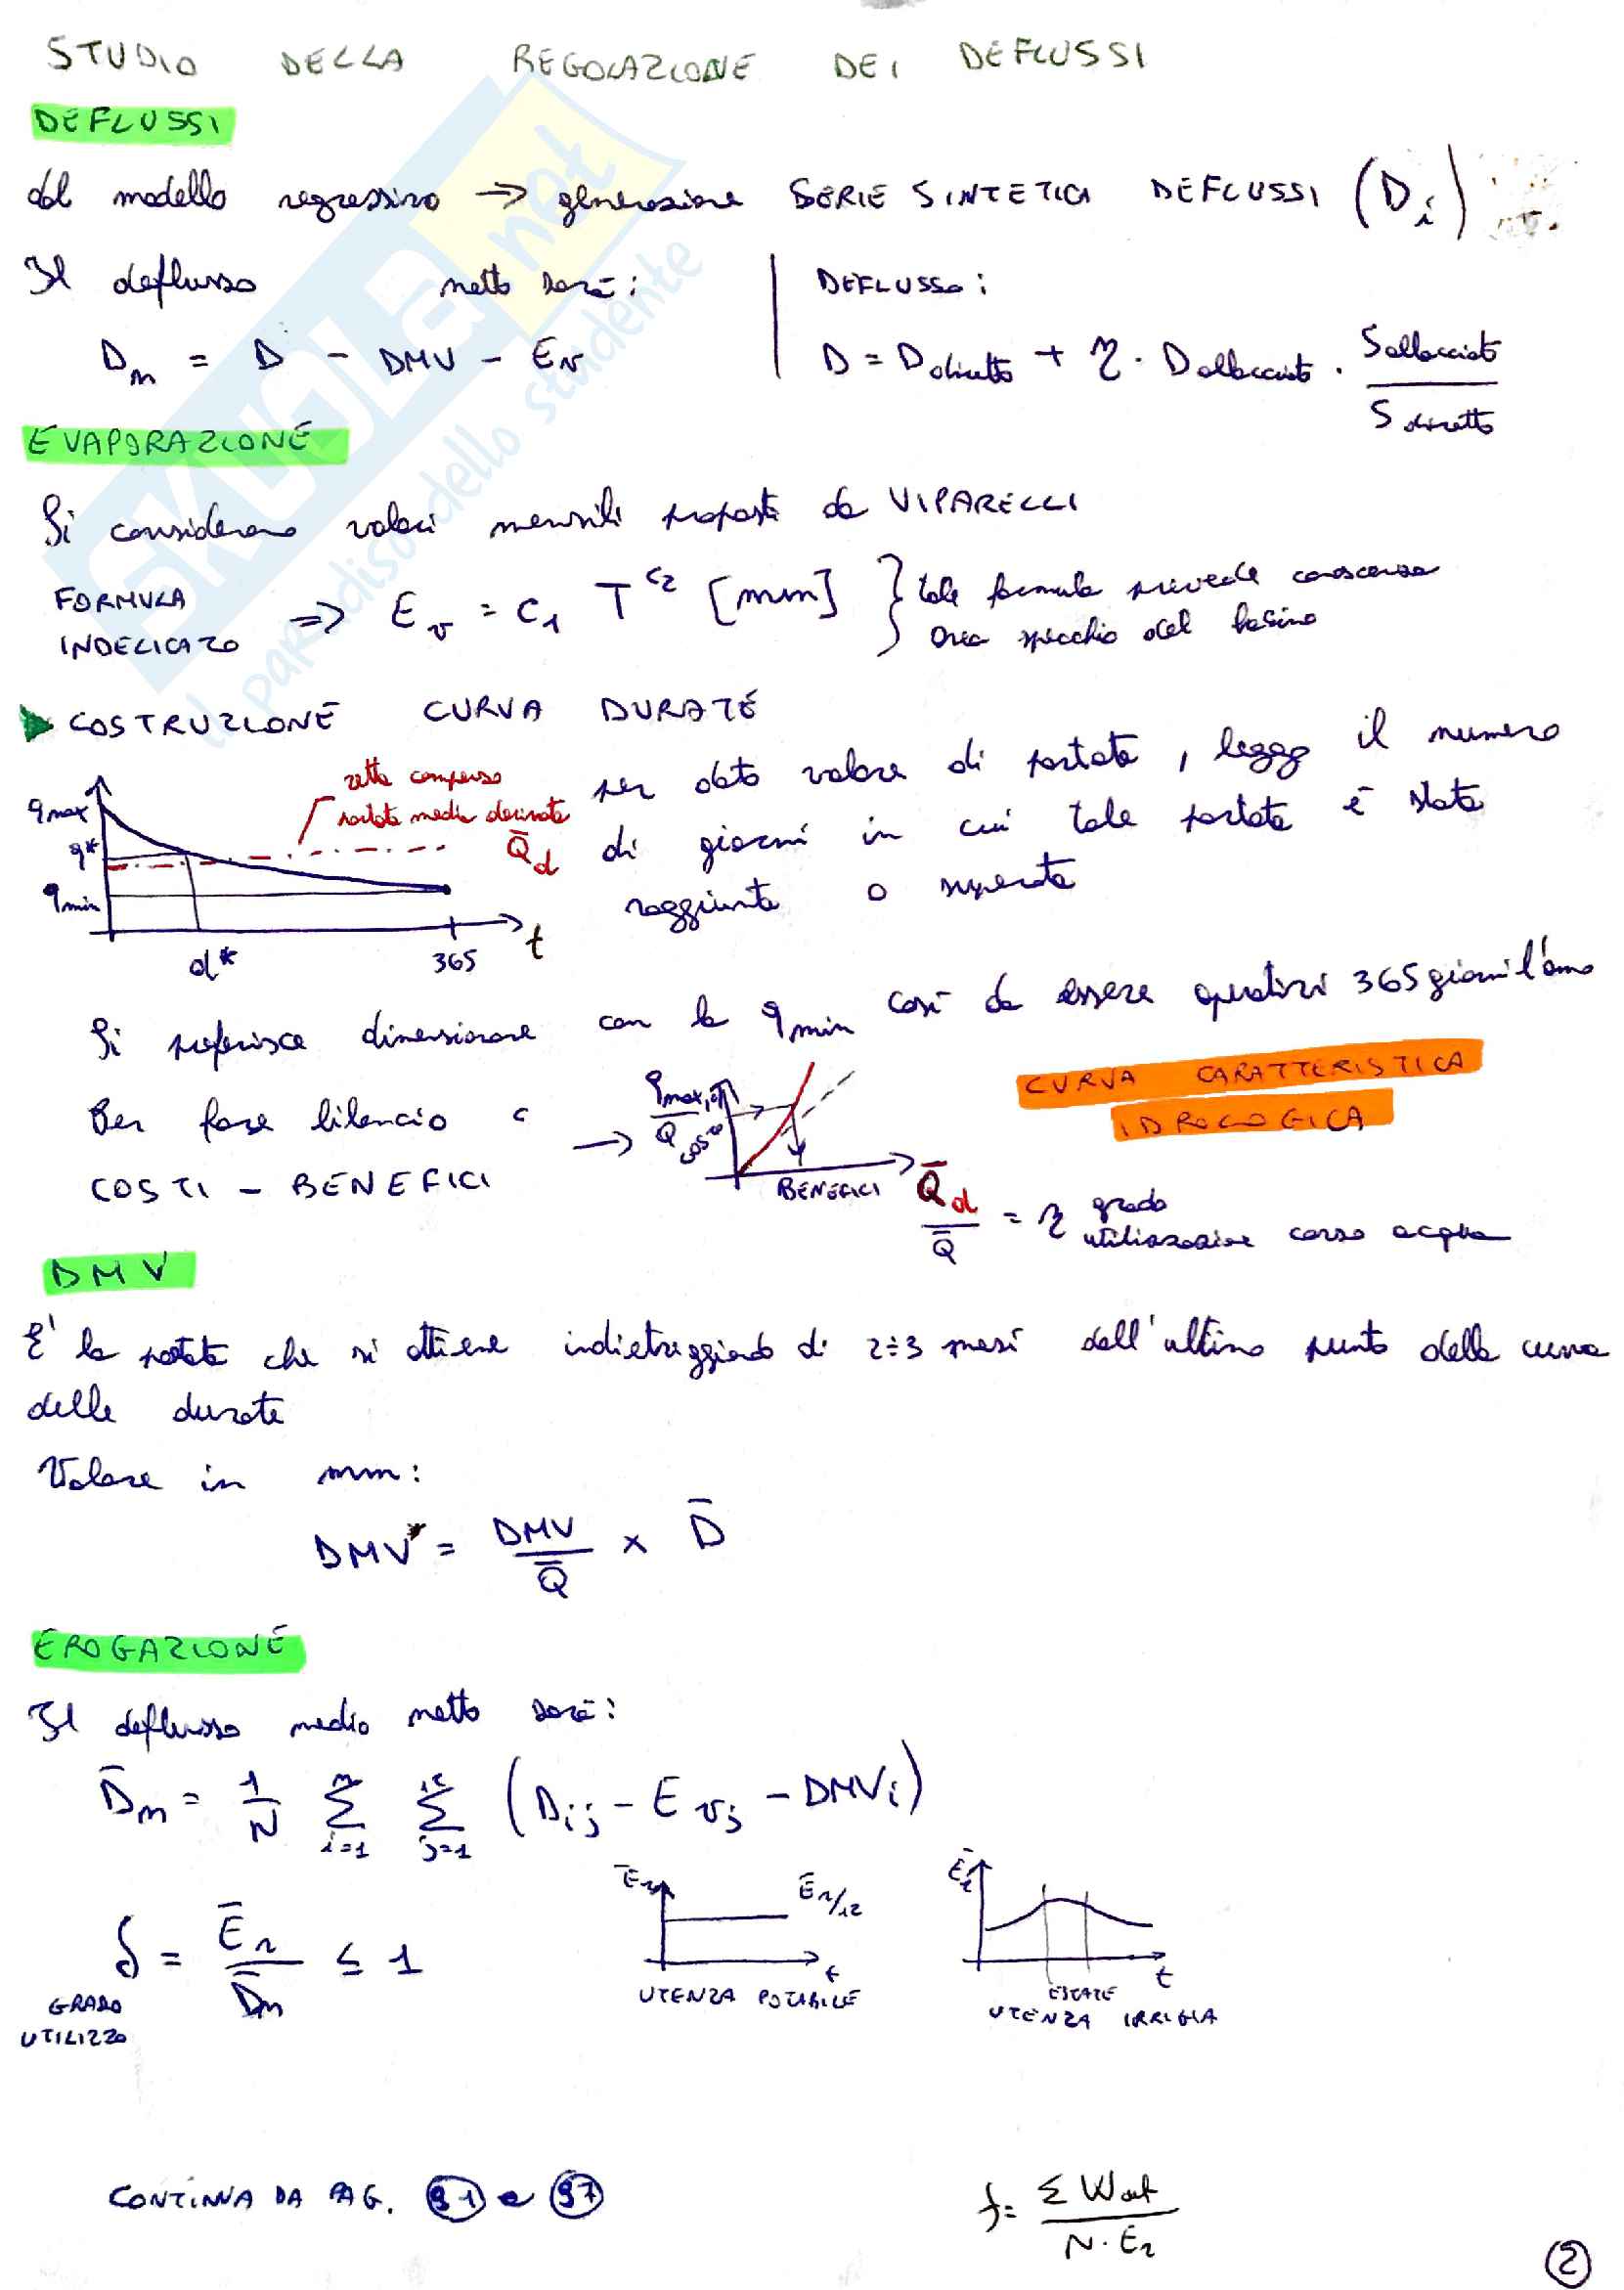 STUDIO DELLA REGOLAZIONE DEI DEFLUSSI
DEFLUSSI
dal modello regressivo → generazione SERIE SINTETICA DEFLUSSI (D_i)
Il deflusso netto sarà:
D_n = D - DMV - E_v
DEFLUSSO:
D = D diretto + η · D allacciato · S allacciato / S diretto
EVAPORAZIONE
Si considerano valori mensili proposti da VIPARELLI
FORMULA INDELICATO ⇒ E_v = c_1 T^c_2 [mm] } tale formula prevede conoscenza
area specchio del bacino
▶ COSTRUZIONE CURVA DURATE
q max
q*
q min
d*
365
t
retta compenso
portata media derivata
Q̄_d
per dato valore di portata, leggo il numero
di giorni in cui tale portata è stata
raggiunta o superata
Si preferisce dimensionare con la q min così da essere operativi 365 giorni l'anno
Per fare bilancio
COSTI - BENEFICI
→
q max,d / Q̄
COSTI
BENEFICI
CURVA CARATTERISTICA
IDROLOGICA
Q̄_d / Q̄ = η grado
utilizzazione corso acqua
DMV
E' la portata che si ottiene indietreggiando di 2÷3 mesi dall'ultimo punto della curva
delle durate
Valore in mm:
DMV* = DMV / Q̄ × D̄
EROGAZIONE
Il deflusso medio netto sarà:
D̄_n = 1/N Σ_{i=1}^{n} Σ_{j=1}^{12} (D_ij - E_vj - DMV_i)
δ = Ē_r / D̄_n ≤ 1
GRADO
UTILIZZO
Ē_r
Ē_r/12
t
UTENZA POTABILE
Ē_r
t
ESTATE
UTENZA IRRIGUA
CONTINUA DA PAG. 91 e 97
f = Σ W_def / N · E_r
2
SKUOLA.net
il paradiso dello studente